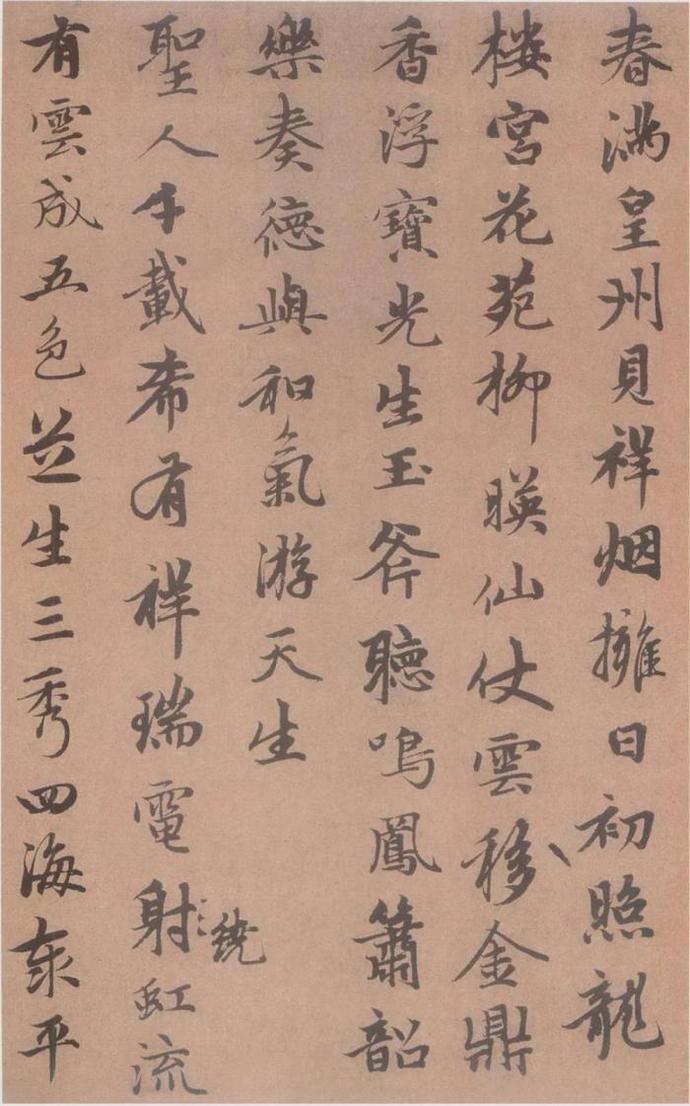 春滿皇州見祥烟擁日初照龍
樓宮花苑柳暎仙仗雲移金鼎
香浮寶光生玉斧聽鳴鳳簫韶
樂奏德與和氣游天生
聖人千載希有祥瑞電射虹流
繞
有雲成五色芝生三秀四海泰平